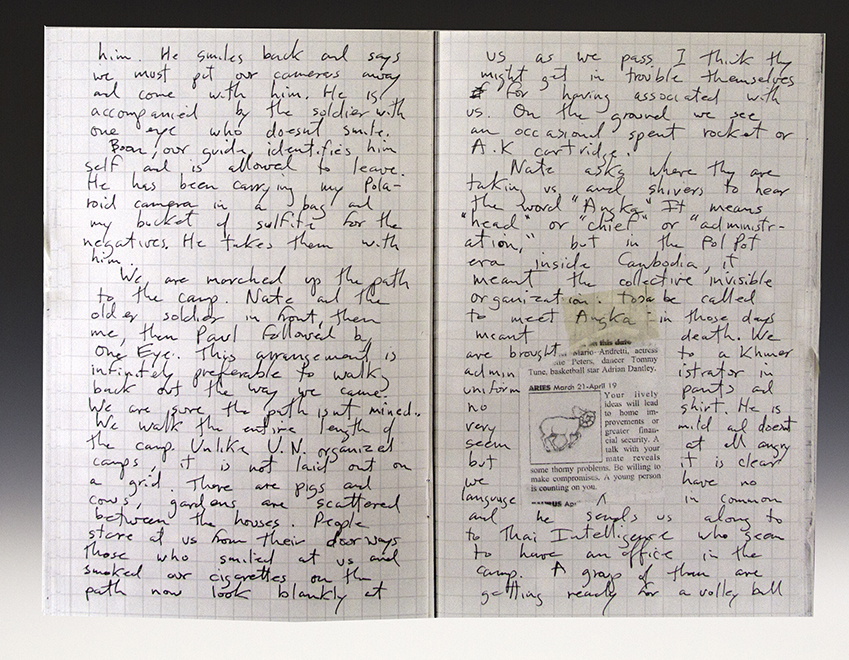 him. He smiles back and says
we must put our cameras away
and come with him. He is
accompanied by the soldier with
one eye who doesnt smile.
Boon, our guide, identifies him
self and is allowed to leave.
He has been carrying my Pola-
roid camera in a bag and
my bucket of sulfite for the
negatives. He takes them with
him.
We are marched up the path
to the camp. Nate and the
older soldier in front, then
me, then Paul followed by
One Eye. This arrangement is
infinitely preferable to walking
back out the way we came.
We are sure the path isnt mined.
We walk the entire length of
the camp. Unlike U.N. organized
camps, it is not laid out on
a grid. There are pigs and
cows, gardens are scattered
between the houses. People
stare at us from their doorways
those who smiled at us and
smoked our cigarettes on the
path now look blankly at
us as we pass. I think they
might get in trouble themselves
for having associated with
us. On the ground we see
an occasional spent rocket or
A.K cartridge.
Nate asks where they are
taking us and shivers to hear
the word "Angka" It means
"head" or "chief" or "administr-
ation," but in the Pol Pot
era inside Cambodia, it
meant the collective invisible
organization. to be called
to meet Angka - in those days
meant death. We
are brought to a Khmer
admin istrator in
uniform pants and
no shirt. He is
very mild and doesnt
seem at all angry
but it is clear
we have no
language in common
and he sends us along to
to Thai Intelligence who seem
to have an office in the
camp. A group of them are
getting ready for a volley ball
on this date
Mario Andretti, actress
Peters, dancer Tommy
Tune, basketball star Adrian Dantley.
ARIES March 21-April 19
Your lively
ideas will lead
to home im-
provements or
greater finan-
cial security. A
talk with your
mate reveals
some thorny problems. Be willing to
make compromises. A young person
is counting on you.